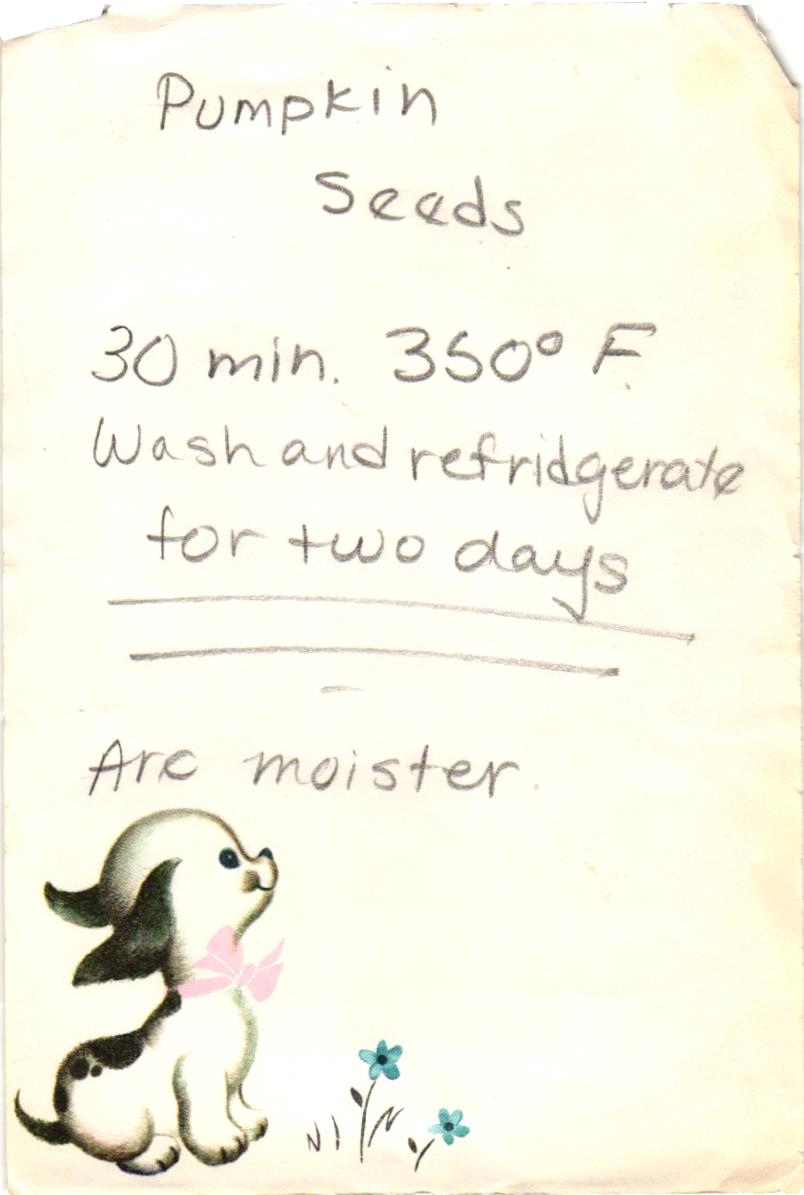 Pumpkin
Seeds
30 min. 350° F.
Wash and refridgerate
for two days
Are moister.